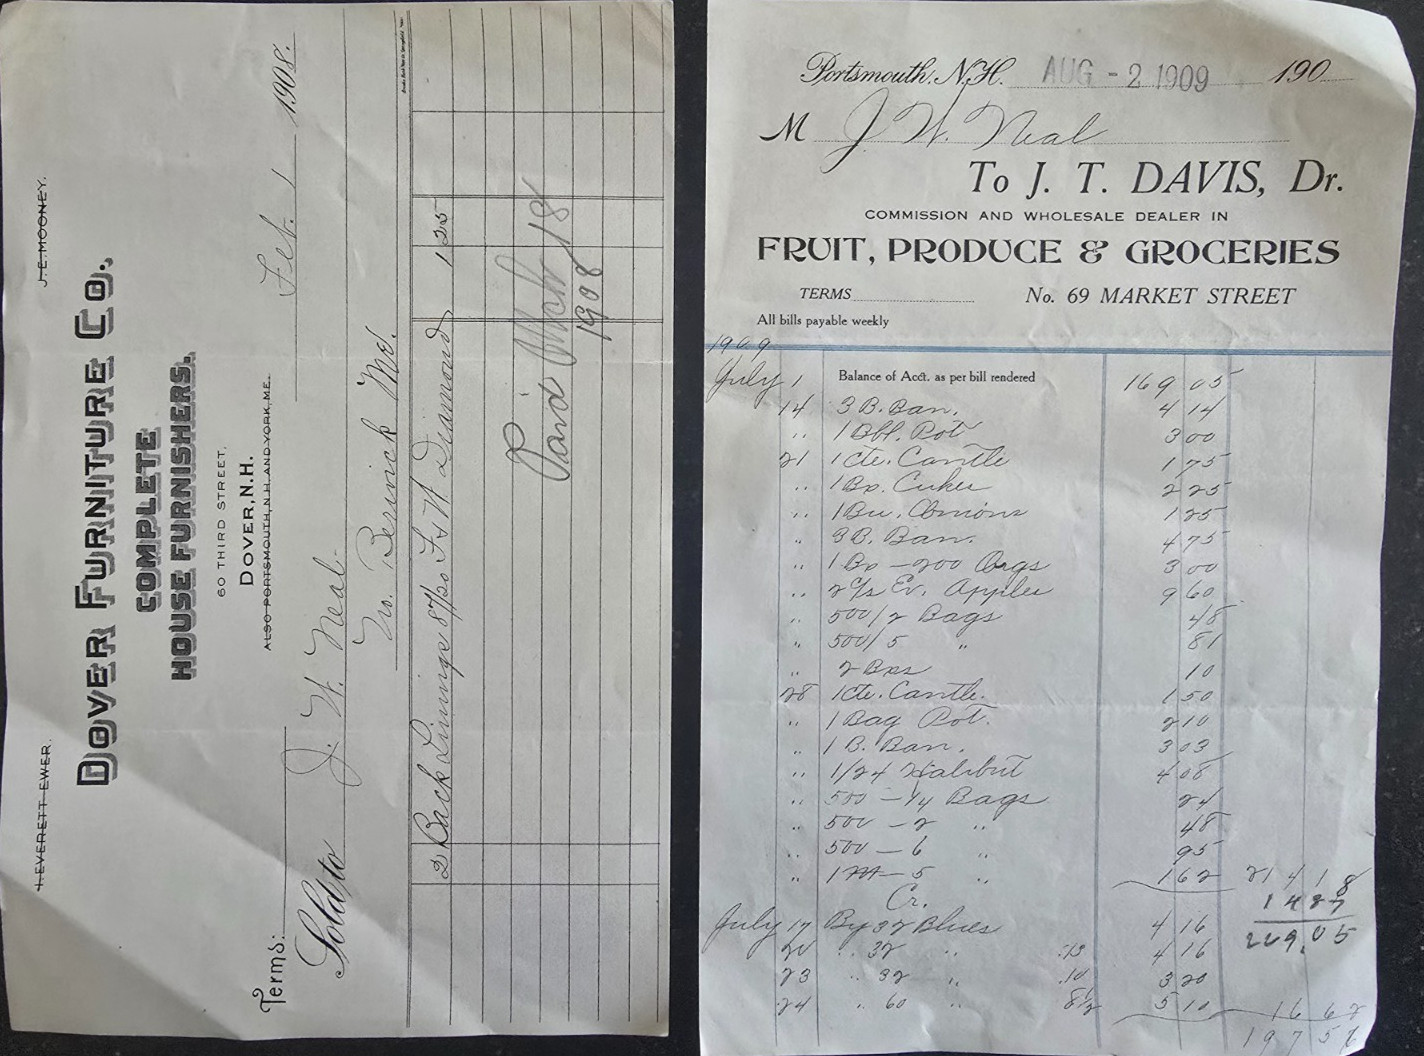 I. EVERETT EWER. J. E. MOONEY.
DOVER FURNITURE CO.,
COMPLETE
HOUSE FURNISHERS.
60 THIRD STREET,
DOVER, N.H.
ALSO PORTSMOUTH, N.H. AND YORK, ME.
Terms: Feb. 1 1908.
Sold to J. W. Neal
No. Berwick Me.
2 Back Linings 8 1 25
Paid Mch 18
1908
Portsmouth, N.H. AUG - 2 1909 190
M J. W. Neal
To J. T. DAVIS, Dr.
COMMISSION AND WHOLESALE DEALER IN
FRUIT, PRODUCE & GROCERIES
TERMS No. 69 MARKET STREET
All bills payable weekly
1909
July 1 Balance of Acct. as per bill rendered 169 05
14 3 B. Ban. 4 14
" 1 Bbl. Pot 3 00
21 1 Cte. Cantle 1 75
" 1 Bx. Cukes 2 25
" 1 Bu. Onions 1 25
" 3 B. Ban. 4 75
" 1 Bx - 200 Orgs 3 00
" 2 c/s Ev. Apples 9 60
" 500/2 Bags 48
" 500/5 " 81
" 2 Bxs 10
28 1 Cte. Cantle. 1 50
" 1 Bag Pot. 2 10
" 1 B. Ban. 3 03
" 1/24 Halibut 4 08
" 500 - 1/4 Bags 24
" 500 - 2 " 48
" 500 - 6 " 95
" 1 M - 5 " 1 62 214 18
Cr. 14 87
July 17 By 32 Blues 4 16 229.05
20 " 32 " .13 4 16
23 " 32 " .10 3 20
24 " 60 " 8½ 5 10 16 62
197 56